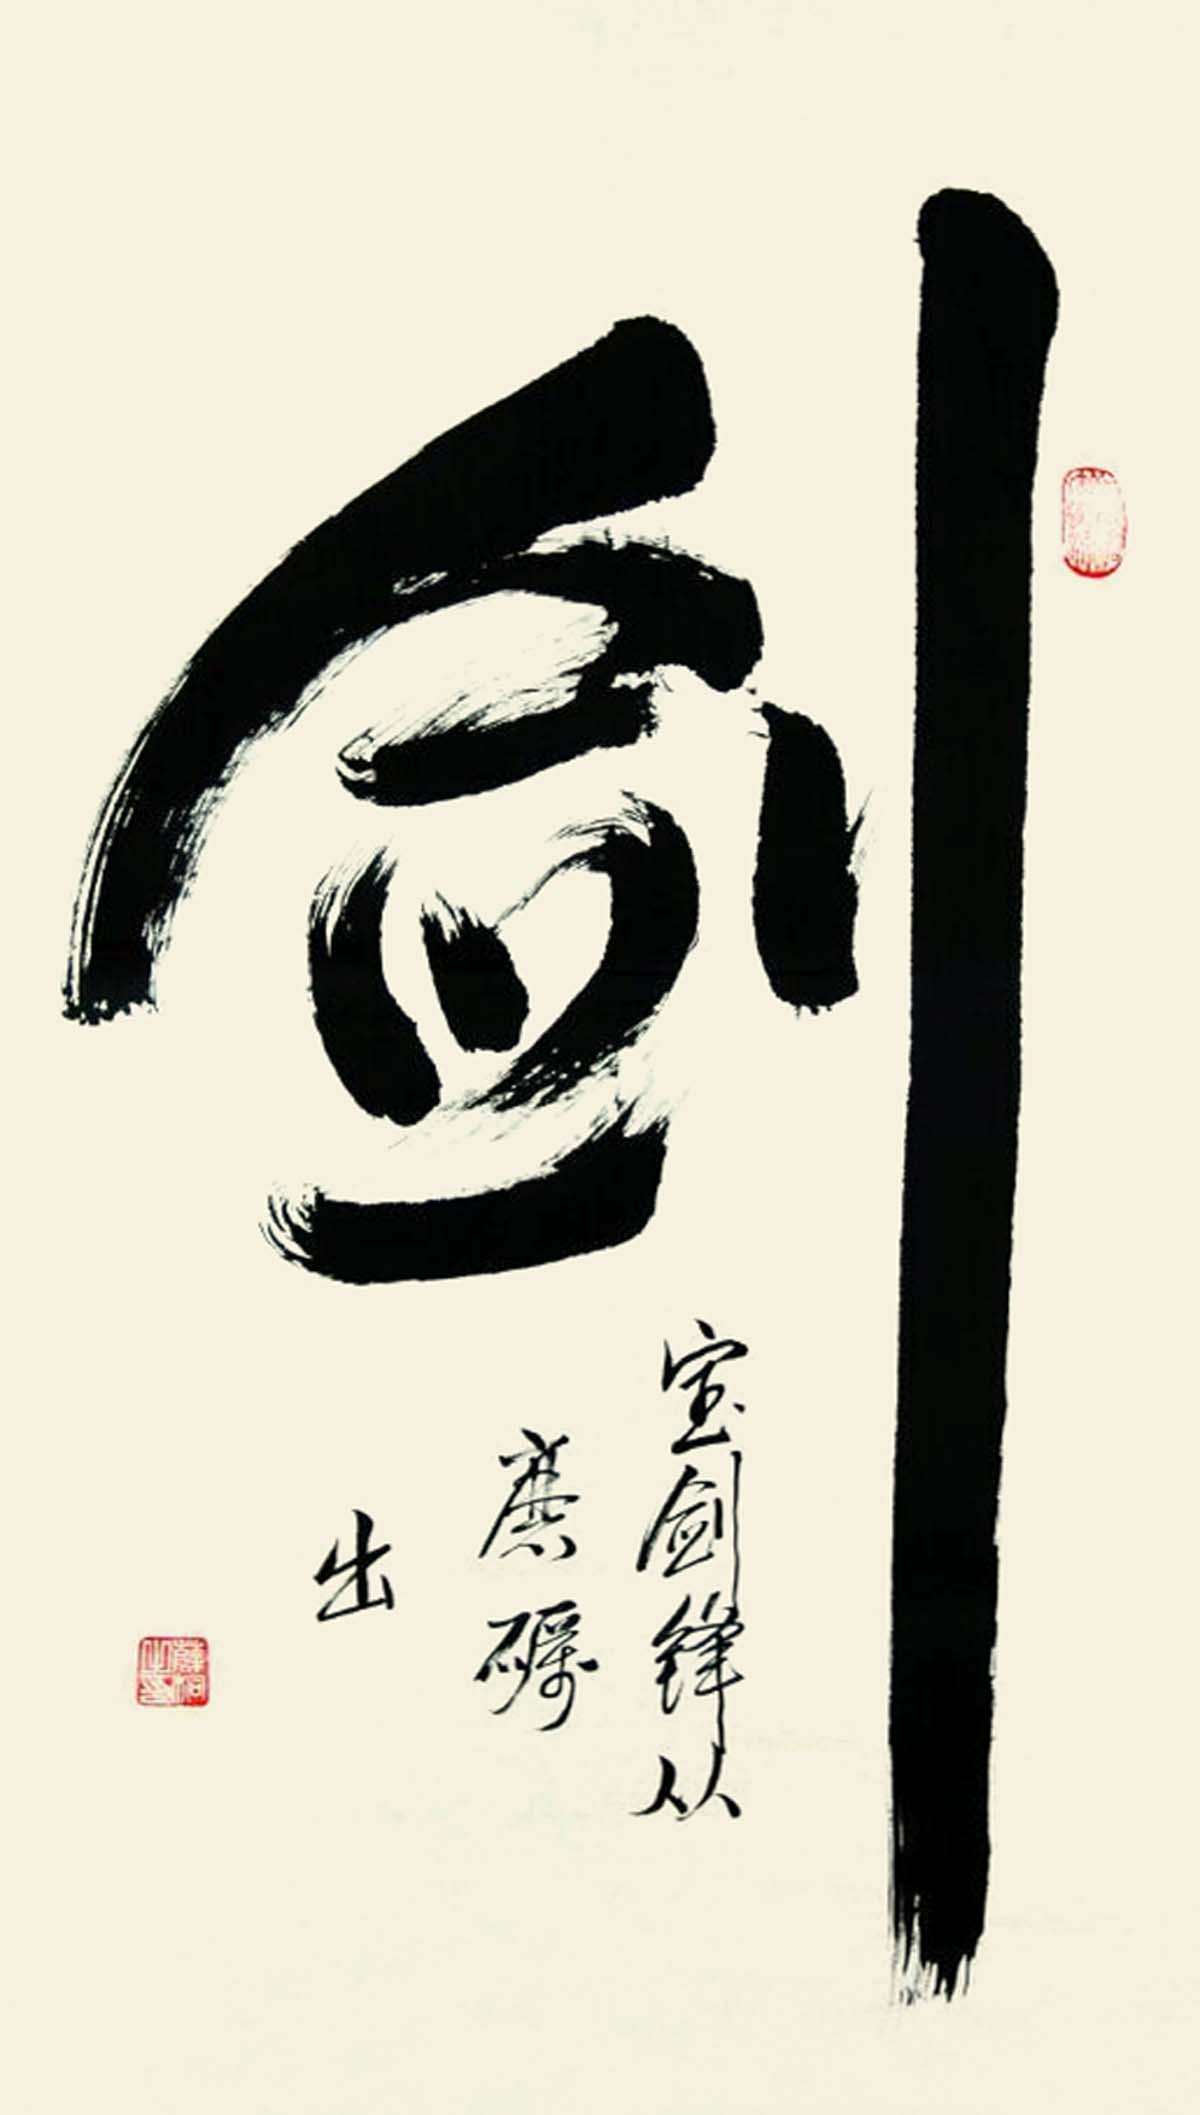 剑
宝剑锋从
磨砺
出